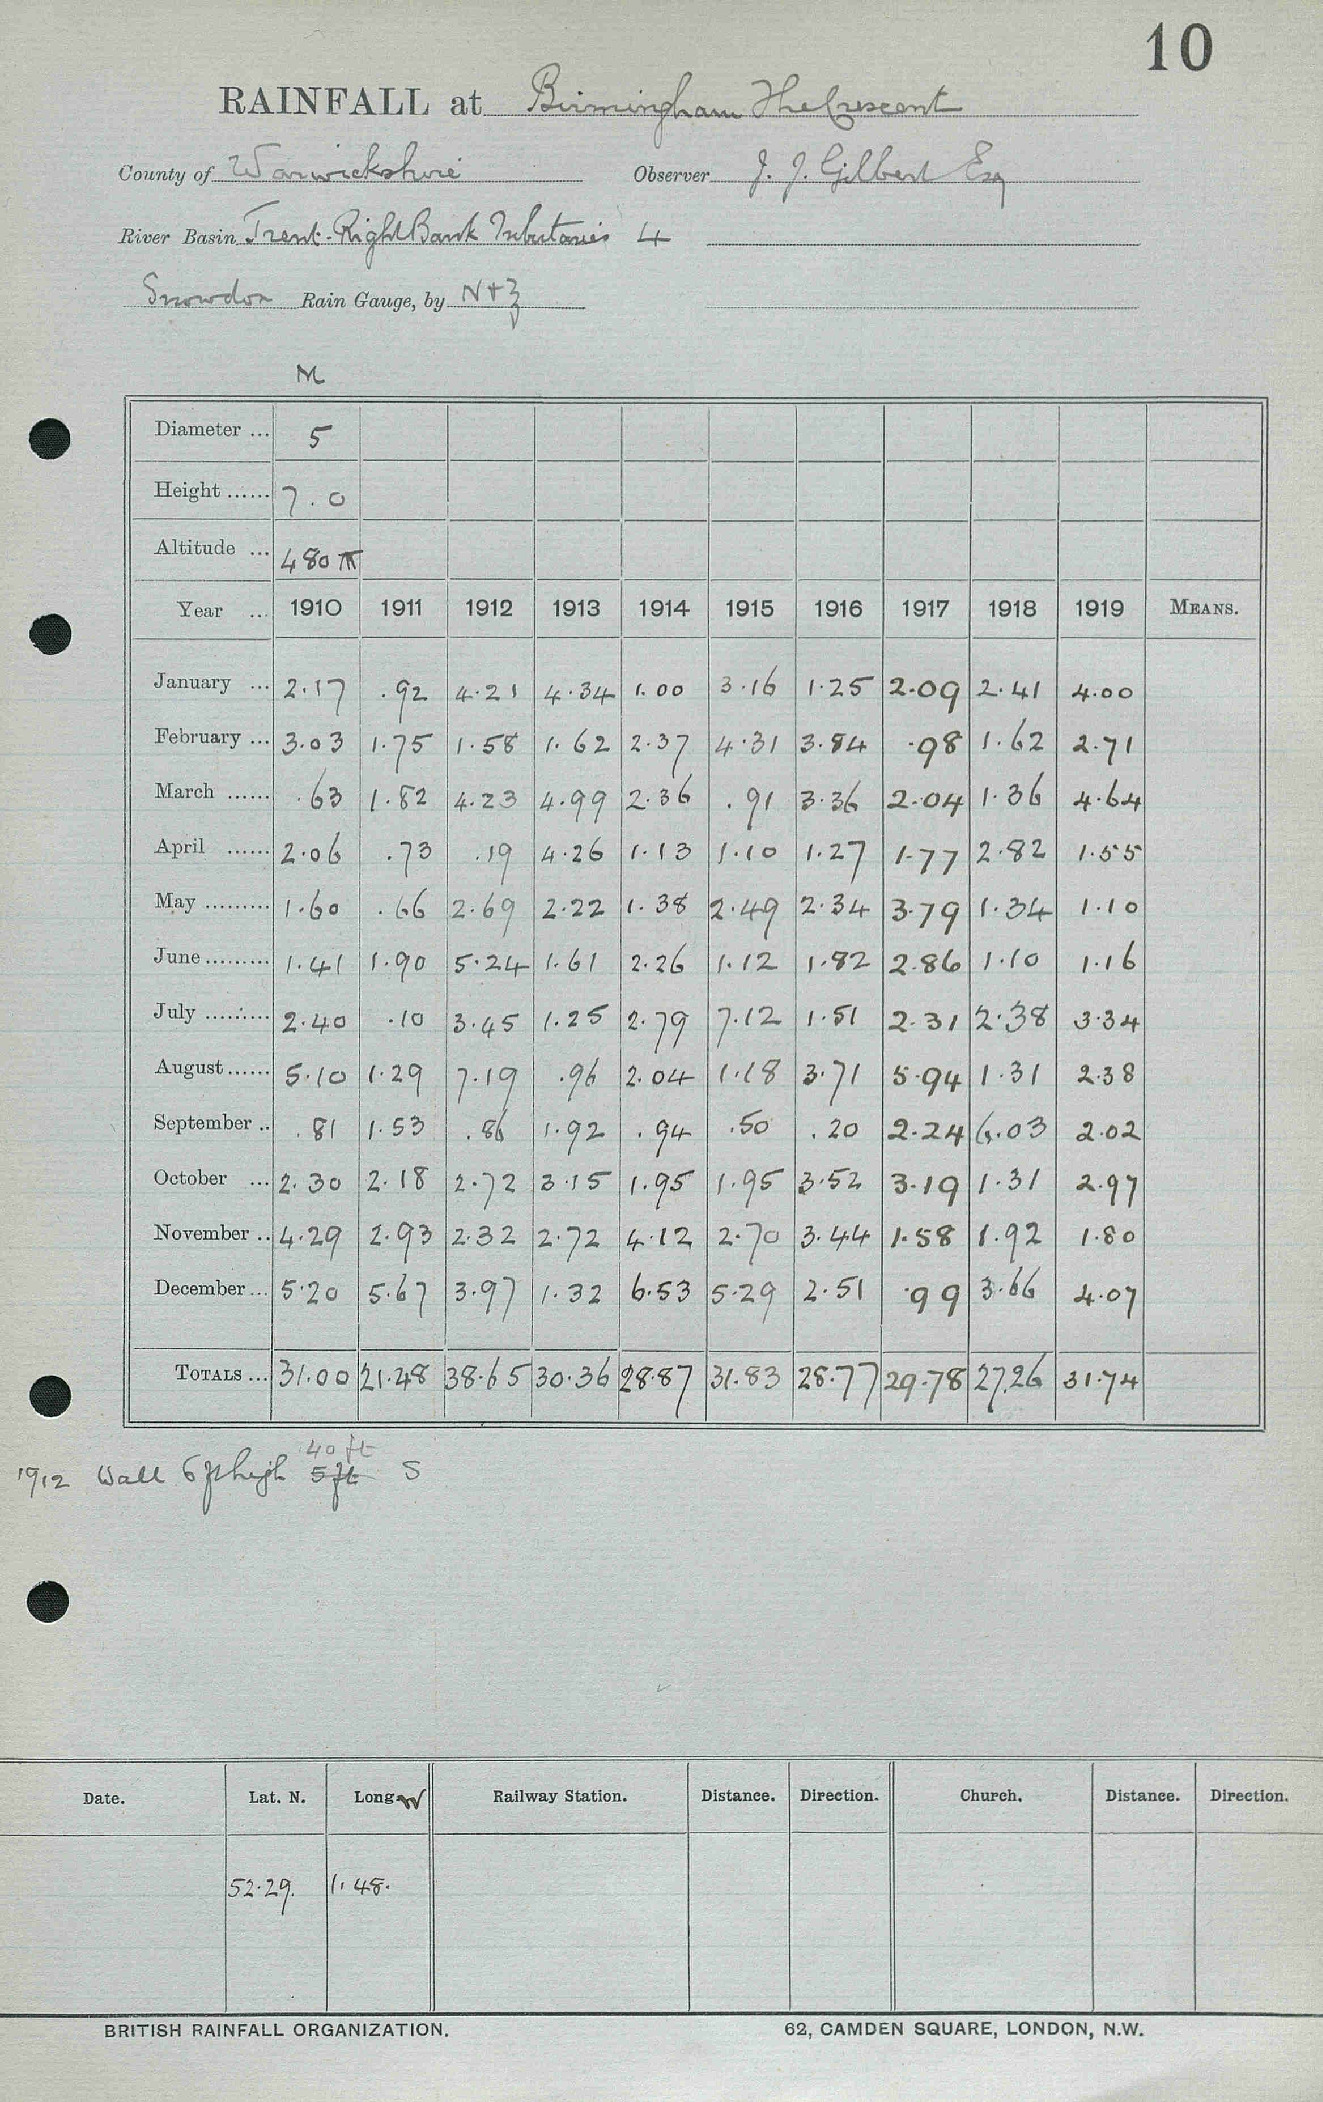 10
RAINFALL at Birmingham The Crescent
County of Warwickshire Observer J. J. Gilbert Esq
River Basin Trent. Right Bank Tributaries 4
Snowdon Rain Gauge, by N+Z
M
Diameter ... 5
Height ...... 7.0
Altitude ... 480
Year ... 1910 1911 1912 1913 1914 1915 1916 1917 1918 1919 MEANS.
January ... 2.17 .92 4.21 4.34 1.00 3.16 1.25 2.09 2.41 4.00
February ... 3.03 1.75 1.58 1.62 2.37 4.31 3.84 .98 1.62 2.71
March ...... .63 1.82 4.23 4.99 2.36 .91 3.36 2.04 1.36 4.64
April ...... 2.06 .73 .19 4.26 1.13 1.10 1.27 1.77 2.82 1.55
May ......... 1.60 .66 2.69 2.22 1.38 2.49 2.34 3.79 1.34 1.10
June ......... 1.41 1.90 5.24 1.61 2.26 1.12 1.82 2.86 1.10 1.16
July ......... 2.40 .10 3.45 1.25 2.79 7.12 1.51 2.31 2.38 3.34
August ...... 5.10 1.29 7.19 .96 2.04 1.18 3.71 5.94 1.31 2.38
September .. .81 1.53 .86 1.92 .94 .50 .20 2.24 6.03 2.02
October ... 2.30 2.18 2.72 3.15 1.95 1.95 3.52 3.19 1.31 2.97
November .. 4.29 2.93 2.32 2.72 4.12 2.70 3.44 1.58 1.92 1.80
December ... 5.20 5.67 3.97 1.32 6.53 5.29 2.51 .99 3.66 4.07
TOTALS ... 31.00 21.48 38.65 30.36 28.87 31.83 28.77 29.78 27.26 31.74
40 ft
1912 Wall 6 ft high 5 ft S
Date. Lat. N. Long W Railway Station. Distance. Direction. Church. Distance. Direction.
52.29. 1.48.
BRITISH RAINFALL ORGANIZATION. 62, CAMDEN SQUARE, LONDON, N.W.